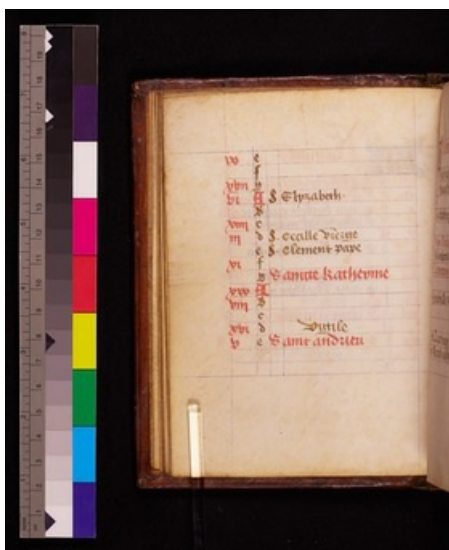 ix e
f
xvii g
vi A S Elyzabeth
b
xiiii c
iii d S cecille vierge
e S clement pape
xi f
g Saincte katherine
xix A
viii b
c
xvi d vigile
v e Saint andrieu